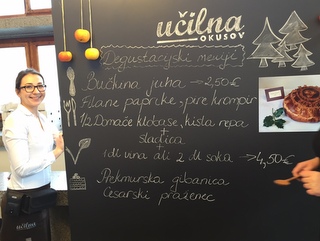 učilna
OKUSOV
Degustacijski meniji
Bučkina juha → 2,50€
Filane paprike, pire krompir
1/2 Domače klobase, kisla repa
+
sladica
+ dl vina ali 2 dl soka → 4,50€
Prekmurska gibanica
Cesarski praženec
učilna